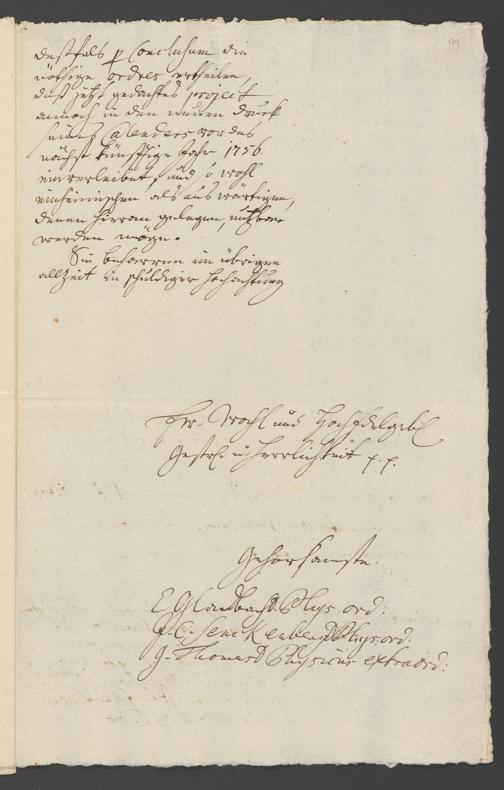 99
desfals p Conclusum die
nöthige ordres ertheilen,
daß jetzt gedachtes project
annoch in den neuen druck
seines Calenders vor das
nächst künfftige Jahr 1756.
einverleibet, und so wohl
einheimischen als auswärtigen,
denen hieran gelegen, nutzbar
werden möge.
Die beharren im übrigen
allzeit in schuldiger Hochachtung
Ew. Wohl und HochEdelgeb
Gestr. u. Herrlichkeit p. p.
Gehorsamste.
E Gladbach Phys. ord:
J. C. Senckenberg Phys. ord.
J. Thomas D Physicus extraord: